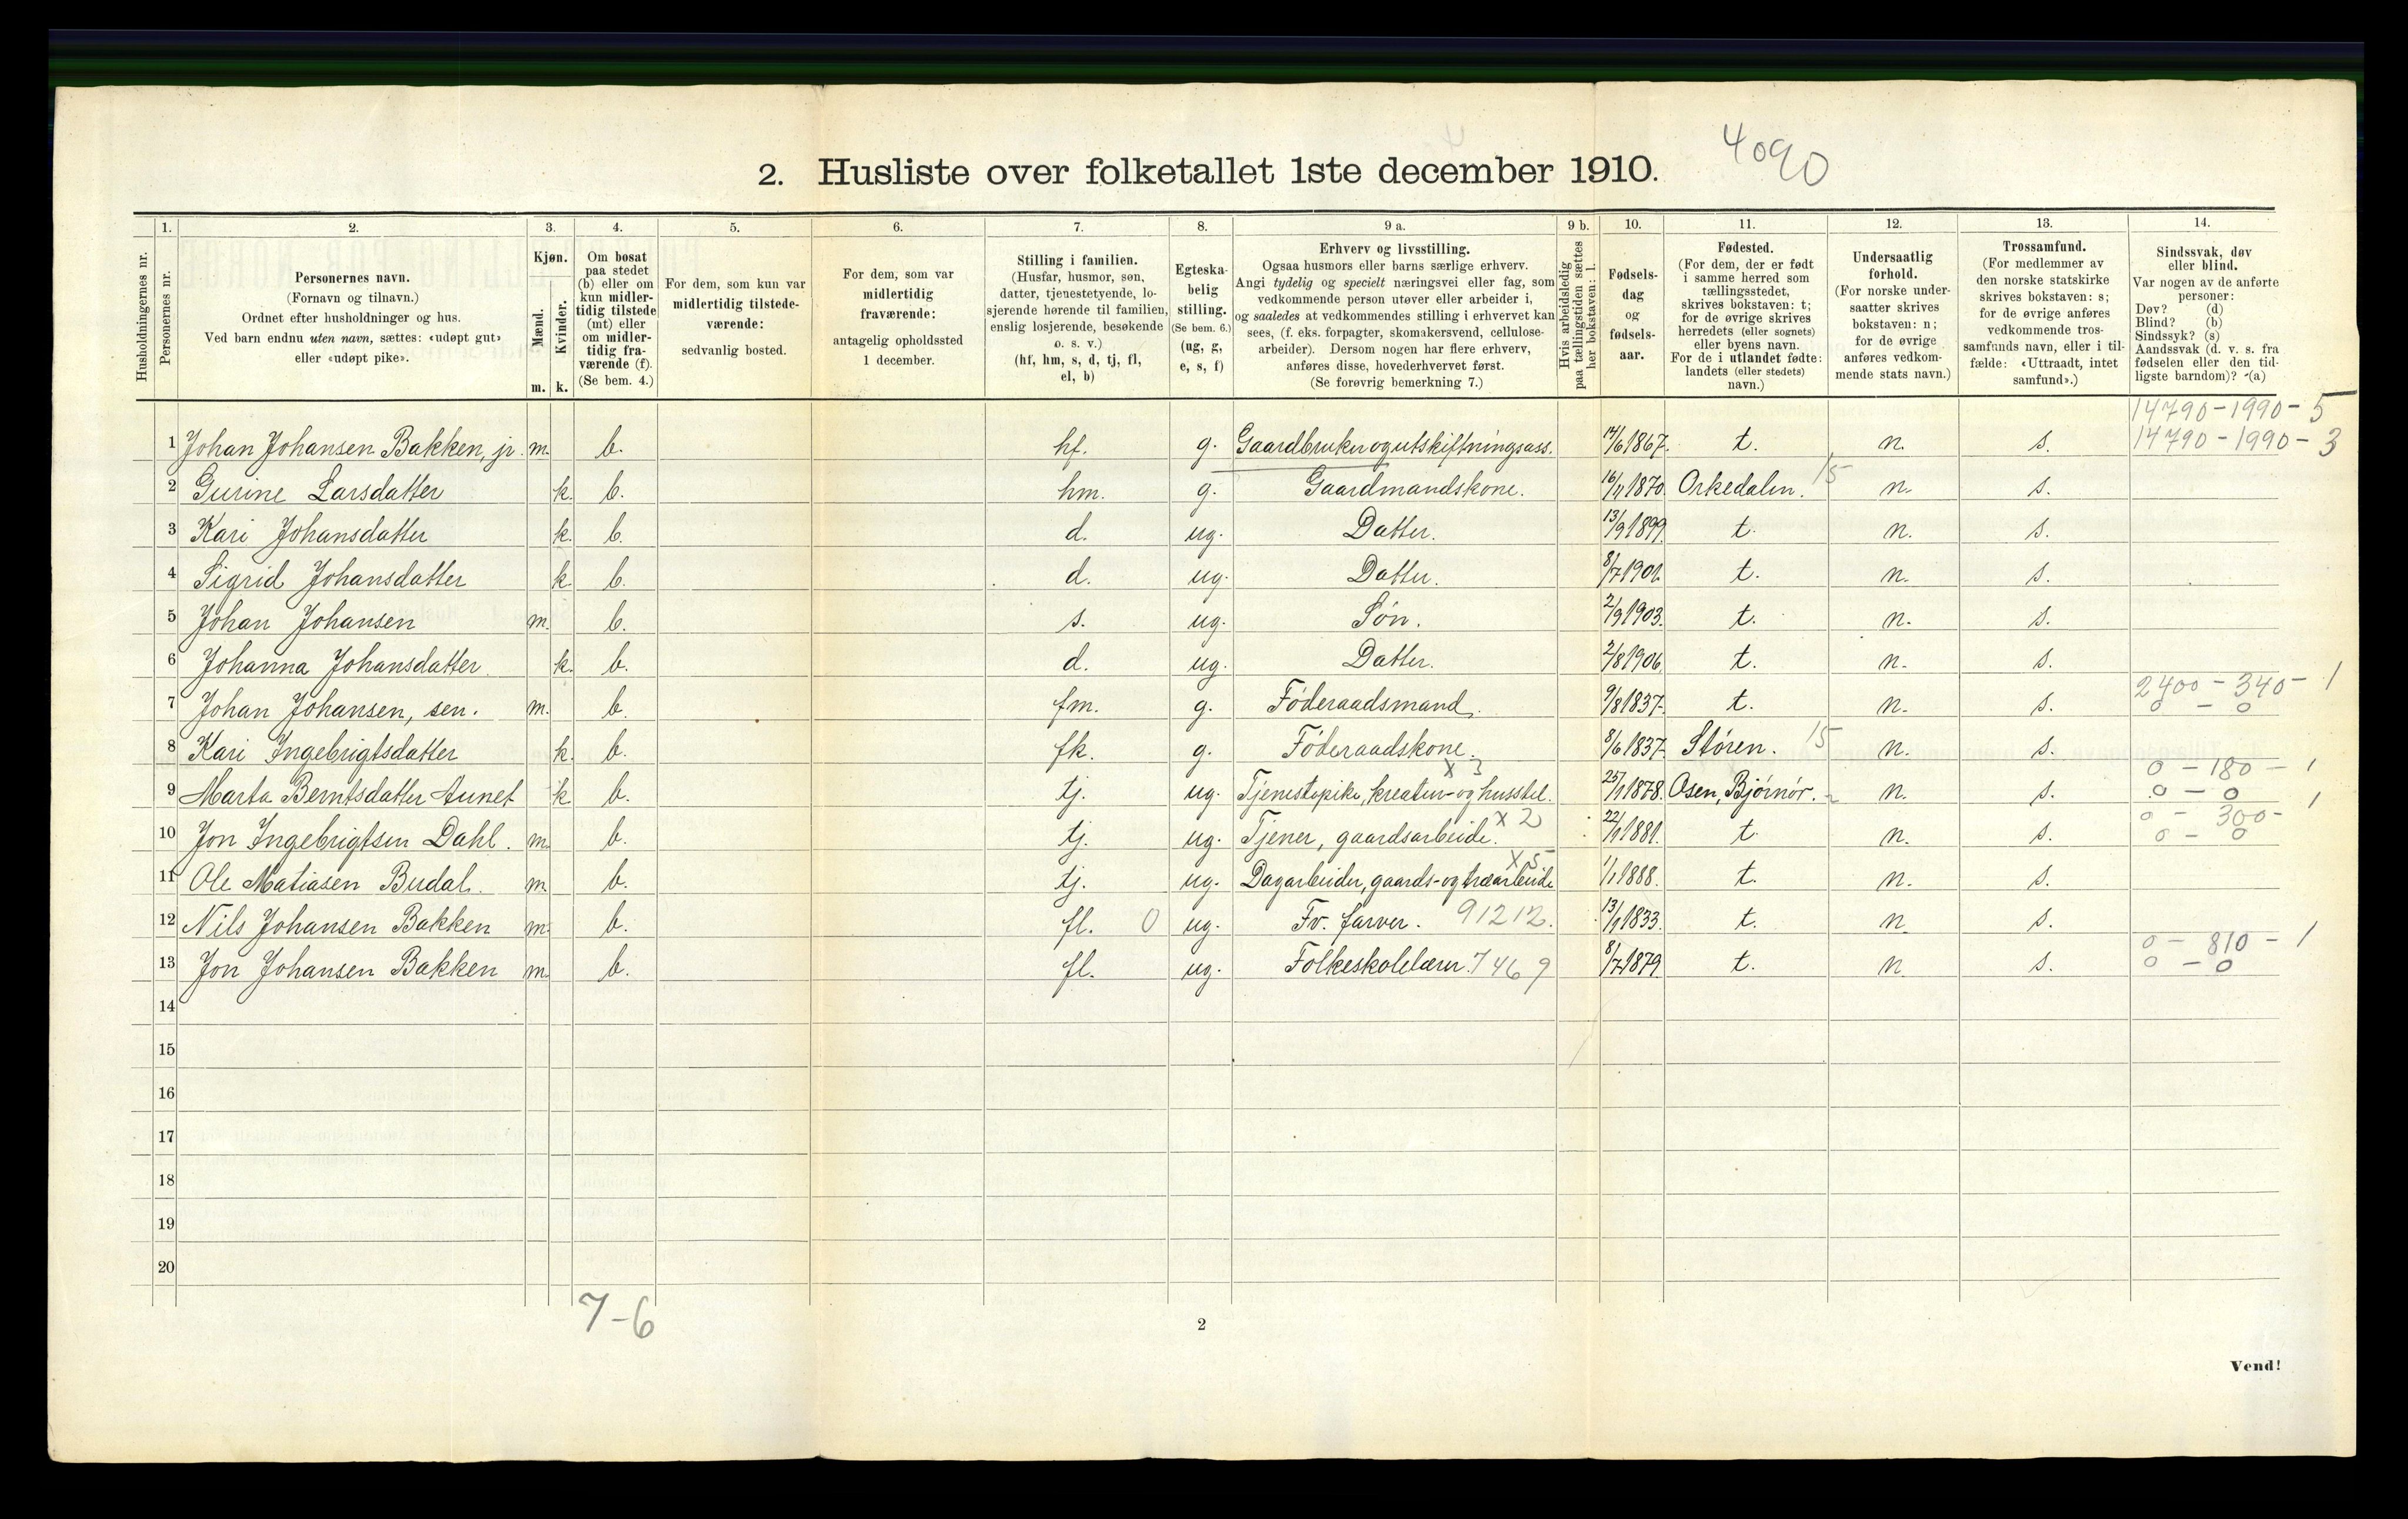 2. Husliste over folketallet 1ste december 1910.
4090
1. 2. 3. 4. 5. 6. 7. 8. 9 a. 9 b. 10. 11. 12. 13. 14.
Husholdningernes nr.
Personernes nr.
Personernes navn.
(Fornavn og tilnavn.)
Ordnet efter husholdninger og hus.
Ved barn endnu uten navn, sættes: «udøpt gut»
eller «udøpt pike».
Kjøn.
Mænd.
Kvinder.
m. k.
Om bosat
paa stedet
(b) eller om
kun midler-
tidig tilstede
(mt) eller
om midler-
tidig fra-
værende (f).
(Se bem. 4.)
For dem, som kun var
midlertidig tilstede-
værende:
sedvanlig bosted.
For dem, som var
midlertidig
fraværende:
antagelig opholdssted
1 december.
Stilling i familien.
(Husfar, husmor, søn,
datter, tjenestetyende, lo-
sjerende hørende til familien,
enslig losjerende, besøkende
o. s. v.)
(hf, hm, s, d, tj, fl,
el, b)
Egteska-
belig
stilling.
(Se bem. 6.)
(ug, g,
e, s, f)
Erhverv og livsstilling.
Ogsaa husmors eller barns særlige erhverv.
Angi tydelig og specielt næringsvei eller fag, som
vedkommende person utøver eller arbeider i,
og saaledes at vedkommendes stilling i erhvervet kan
sees, (f. eks. forpagter, skomakersvend, cellulose-
arbeider). Dersom nogen har flere erhverv,
anføres disse, hovederhvervet først.
(Se forøvrig bemerkning 7.)
Hvis arbeidsledig
paa tællingstiden sættes
her bokstaven: l.
Fødsels-
dag
og
fødsels-
aar.
Fødested.
(For dem, der er født
i samme herred som
tællingsstedet,
skrives bokstaven: t;
for de øvrige skrives
herredets (eller sognets)
eller byens navn.
For de i utlandet fødte:
landets (eller stedets)
navn.)
Undersaatlig
forhold.
(For norske under-
saatter skrives
bokstaven: n;
for de øvrige
anføres vedkom-
mende stats navn.)
Trossamfund.
(For medlemmer av
den norske statskirke
skrives bokstaven: s;
for de øvrige anføres
vedkommende tros-
samfunds navn, eller i til-
fælde: «Uttraadt, intet
samfund».)
Sindssvak, døv
eller blind.
Var nogen av de anførte
personer:
Døv? (d)
Blind? (b)
Sindssyk? (s)
Aandssvak (d. v. s. fra
fødselen eller den tid-
ligste barndom)? (a)
14790-1990-5
1 Johan Johansen Bakken, jr. m. b. hf. g. Gaardbruker og utskiftningsass. 14/6 1867. t. n. s. 14790-1990-3
2 Gurine Larsdatter k. b. hm. g. Gaardmandskone. 16/11 1870. Orkedalen. 15 n. s.
3 Kari Johansdatter k. b. d. ug. Datter. 13/9 1899. t. n. s.
4 Sigrid Johansdatter k. b. d. ug. Datter. 8/7 1901. t. n. s.
5 Johan Johansen m. b. s. ug. Søn. 2/9 1903. t. n. s.
6 Johanna Johansdatter. k. b. d. ug. Datter. 2/8 1906. t. n. s.
2400-340-1
7 Johan Johansen, sen. m. b. fm. g. Føderaadsmand. 9/8 1837. t. n. s. 0 - 0
8 Kari Ingebrigtsdatter k. b. fk. g. Føderaadskone. 8/6 1837. Støren. 15 n. s.
x 3 0 - 180 - 1
9 Marta Berntsdatter Aunet k. b. tj. ug. Tjenestepike, kreatur- og husstel. 25/1 1878. Osen, Bjørnør. n. s. 0 - 0
x 2 0 - 300 - 1
10 Jon Ingebrigtsen Dahl. m. b. tj. ug. Tjener, gaardsarbeide. 22/1 1881. t. n. s. 0 - 0
x 5
11 Ole Matiasen Budal. m. b. tj. ug. Dagarbeider, gaards- og træarbeide 1/1 1888. t. n. s.
12 Nils Johansen Bakken m. b. fl. 0 ug. Fv. farver. 91212. 13/1 1833. t. n. s.
0 - 810 - 1
13 Jon Johansen Bakken m. b. fl. ug. Folkeskolelærer. 7469 8/7 1879. t. n. s. 0 - 0
14
15
16
17
18
19
20
7-6
2
Vend!